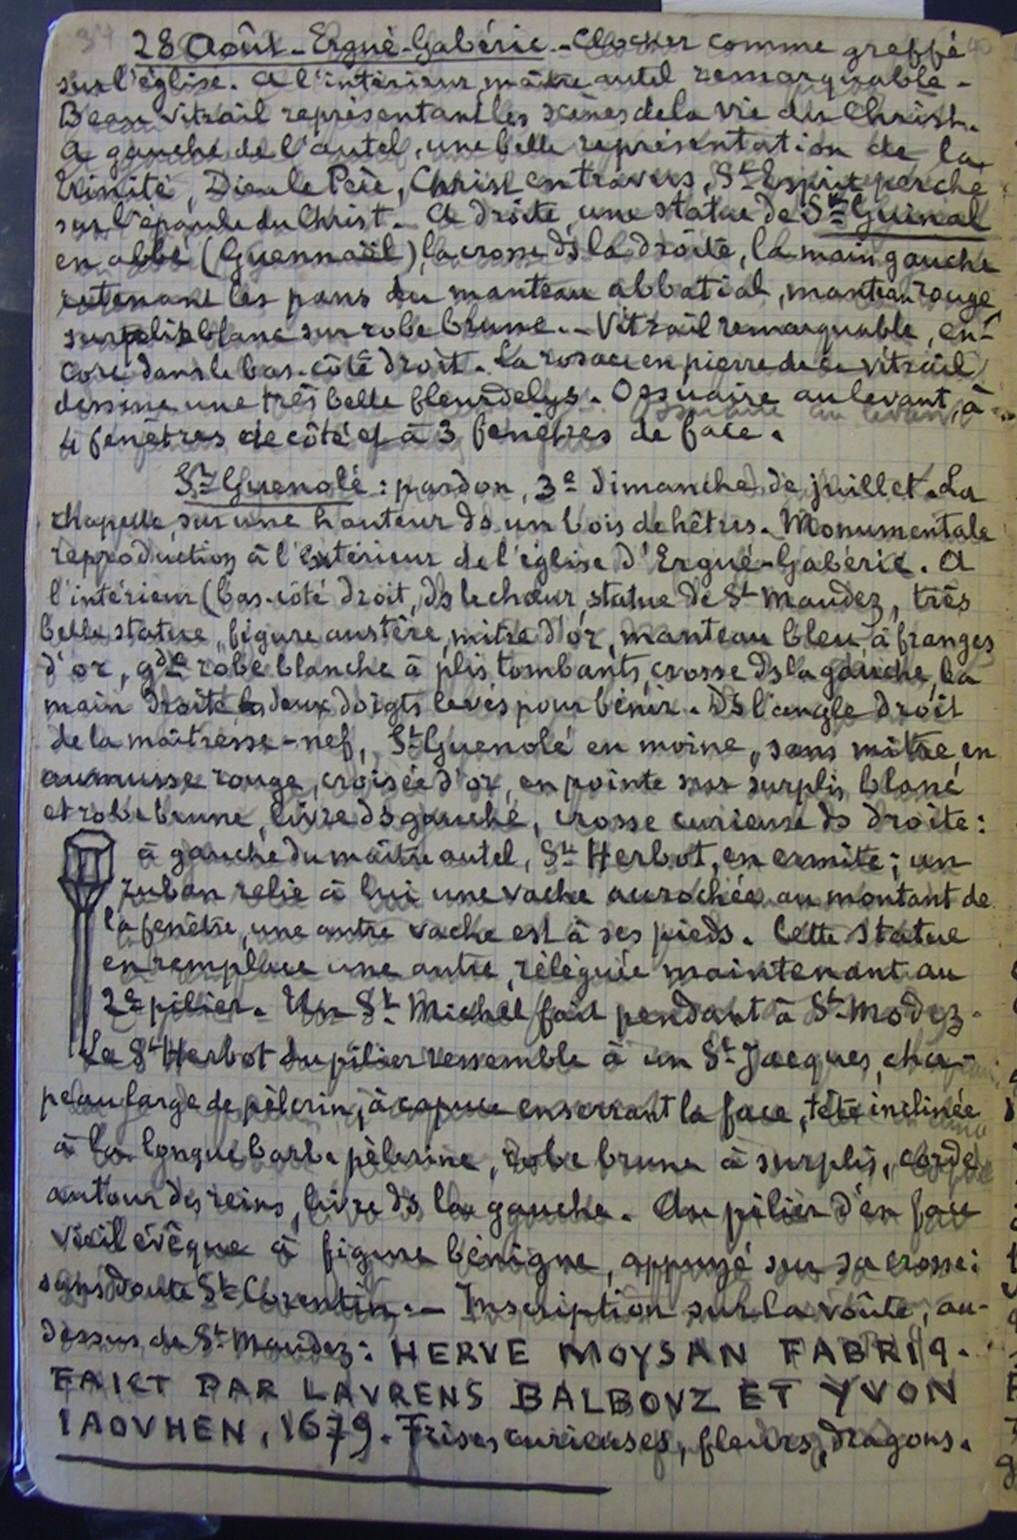 28 Août - Ergué-Gabéric. - Clocher comme greffé
sur l'église. A l'intérieur maître autel remarquable -
Beau vitrail représentant les scènes de la vie du Christ.
A gauche de l'autel, une belle représentation de la
Trinité, Dieu le Père, Christ en travers, St Esprit perché
sur l'épaule du Christ. - A droite, une statue de St Guinal
en abbé (Guennaël), la crosse ds la droite, la main gauche
retenant les pans du manteau abbatial, manteau rouge,
surplis blanc sur robe brune. - Vitrail remarquable, en-
core dans le bas-côté droit. La rosace en pierre de ce vitrail
dessine une très belle fleur de lys. Ossuaire au levant, à
4 fenêtres de côté et à 3 fenêtres de face.
St Guenolé : pardon, 3e dimanche de juillet. La
chapelle, sur une hauteur ds un bois de hêtres. Monumentale
reproduction à l'extérieur de l'église d'Ergué-Gabéric. A
l'intérieur (bas-côté droit, ds le chœur, statue de St Maudez, très
belle statue, figure austère, mitre d'or, manteau bleu, à franges
d'or, gde robe blanche à plis tombants, crosse ds la gauche, la
main droite les deux doigts levés pour bénir. Ds l'angle droit
de la maîtresse-nef, St Guenolé en moine, sans mitre, en
aumusse rouge, croisée d'or, en pointe sur surplis blanc
et robe brune, livre ds gauche, crosse curieuse ds droite :
à gauche du maître autel, St Herbot, en ermite ; un
ruban relie à lui une vache accrochée au montant de
la fenêtre, une autre vache est à ses pieds. Cette statue
en remplace une autre, réléguée maintenant au
2e pilier. Un St Michel fait pendant à St Modez.
Le St Herbot du pilier ressemble à un St Jacques, cha-
peau large de pèlerin, à capuce enserrant la face, tête inclinée
à la longue barbe pèlerine, robe brune à surplis, corde
autour des reins, livre ds la gauche. Au pilier d'en face
vieil évêque à figure bénigne, appuyé sur sa crosse :
sans doute St Corentin. - Inscription sur la voûte, au-
dessus de St Maudez : HERVE MOYSAN FABRIQ.
FAICT PAR LAVRENS BALBOVZ ET YVON
IAOVHEN, 1679. Frises curieuses, fleurs, dragons.